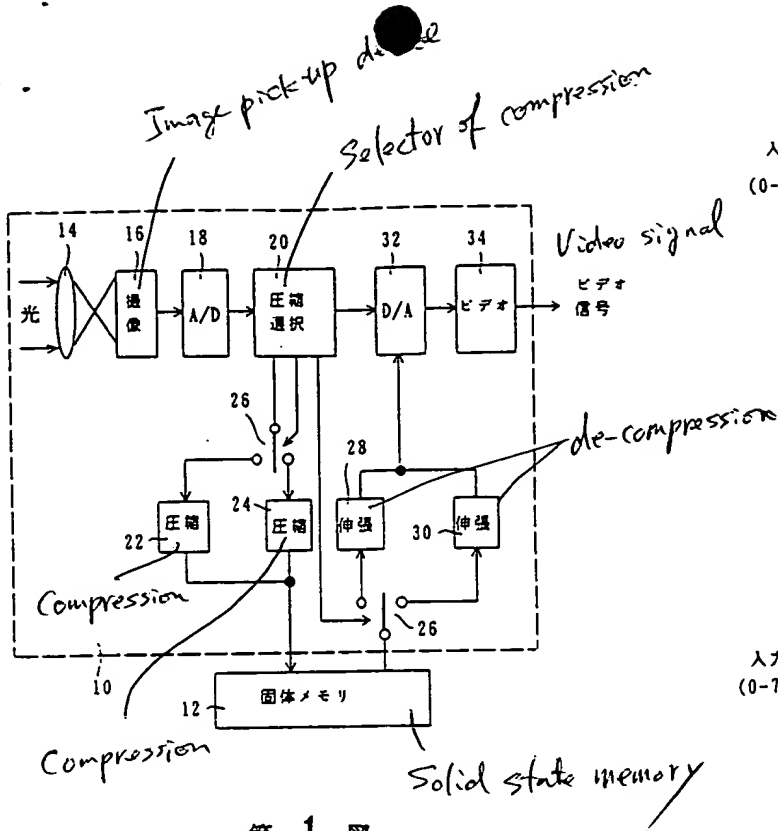 Image pick-up
Selector of compression
入
(0-
Video signal
14
16
18
20
32
34
光
撮像
A/D
圧縮
選択
D/A
ビデオ
ビデオ
信号
26
28
de-compression
圧縮
22
24
圧縮
伸張
30
伸張
Compression
26
10
12
固体メモリ
入力
(0-7
Compression
Solid state memory
第 1 図